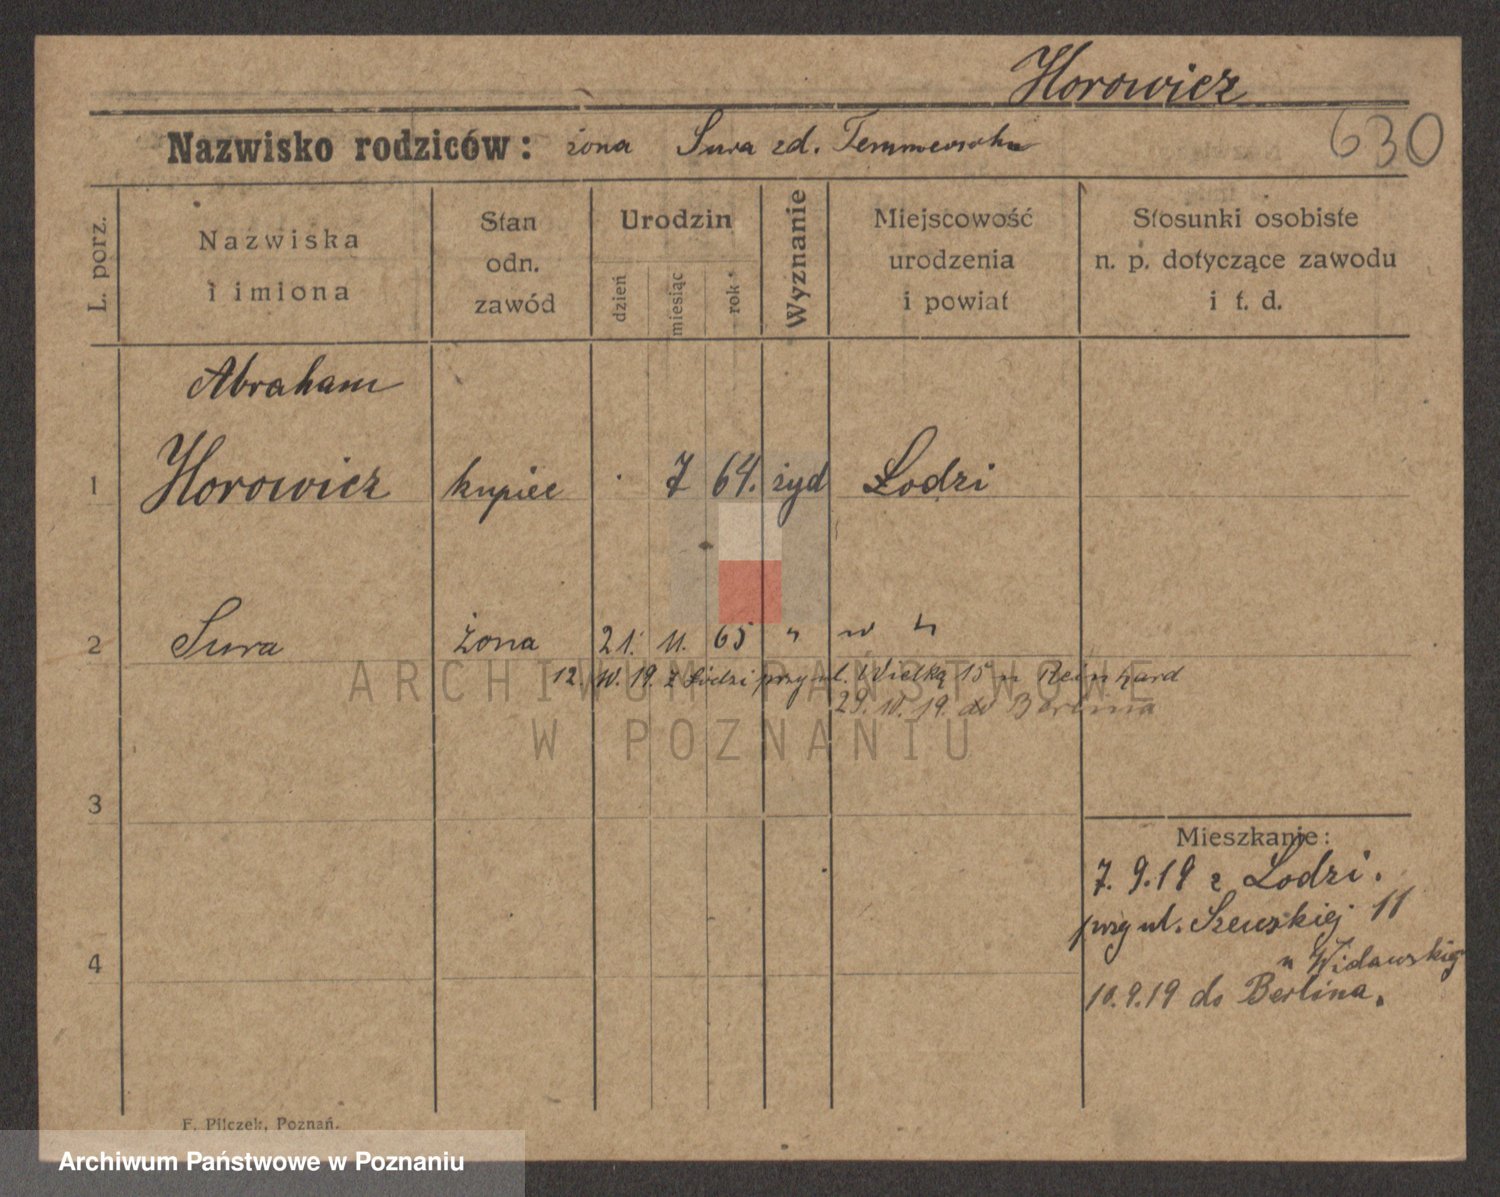 Horowicz
630
Nazwisko rodziców: żona Sura zd.
L. porz.
Nazwiska i imiona
Stan odn. zawód
Urodzin
dzień
miesiąc
rok
Wyznanie
Miejscowość urodzenia i powiat
Stosunki osobiste n. p. dotyczące zawodu i t. d.
Abraham
1 Horowicz kupiec . 7 64. żyd Łodzi
2 Sura żona 21. 11. 65 " w "
12. 10. 19. z Łodzi przy ul. Wielką 15 u Reinhard
29. 10. 19. do Berlina
ARCHIWUM PAŃSTWOWE
W POZNANIU
3
Mieszkanie:
7. 9. 19 z Łodzi.
przy ul. Szewskiej 11
u Widawskiej
4
10. 9. 19 do Berlina.
F. Pilczek, Poznań.
Archiwum Państwowe w Poznaniu